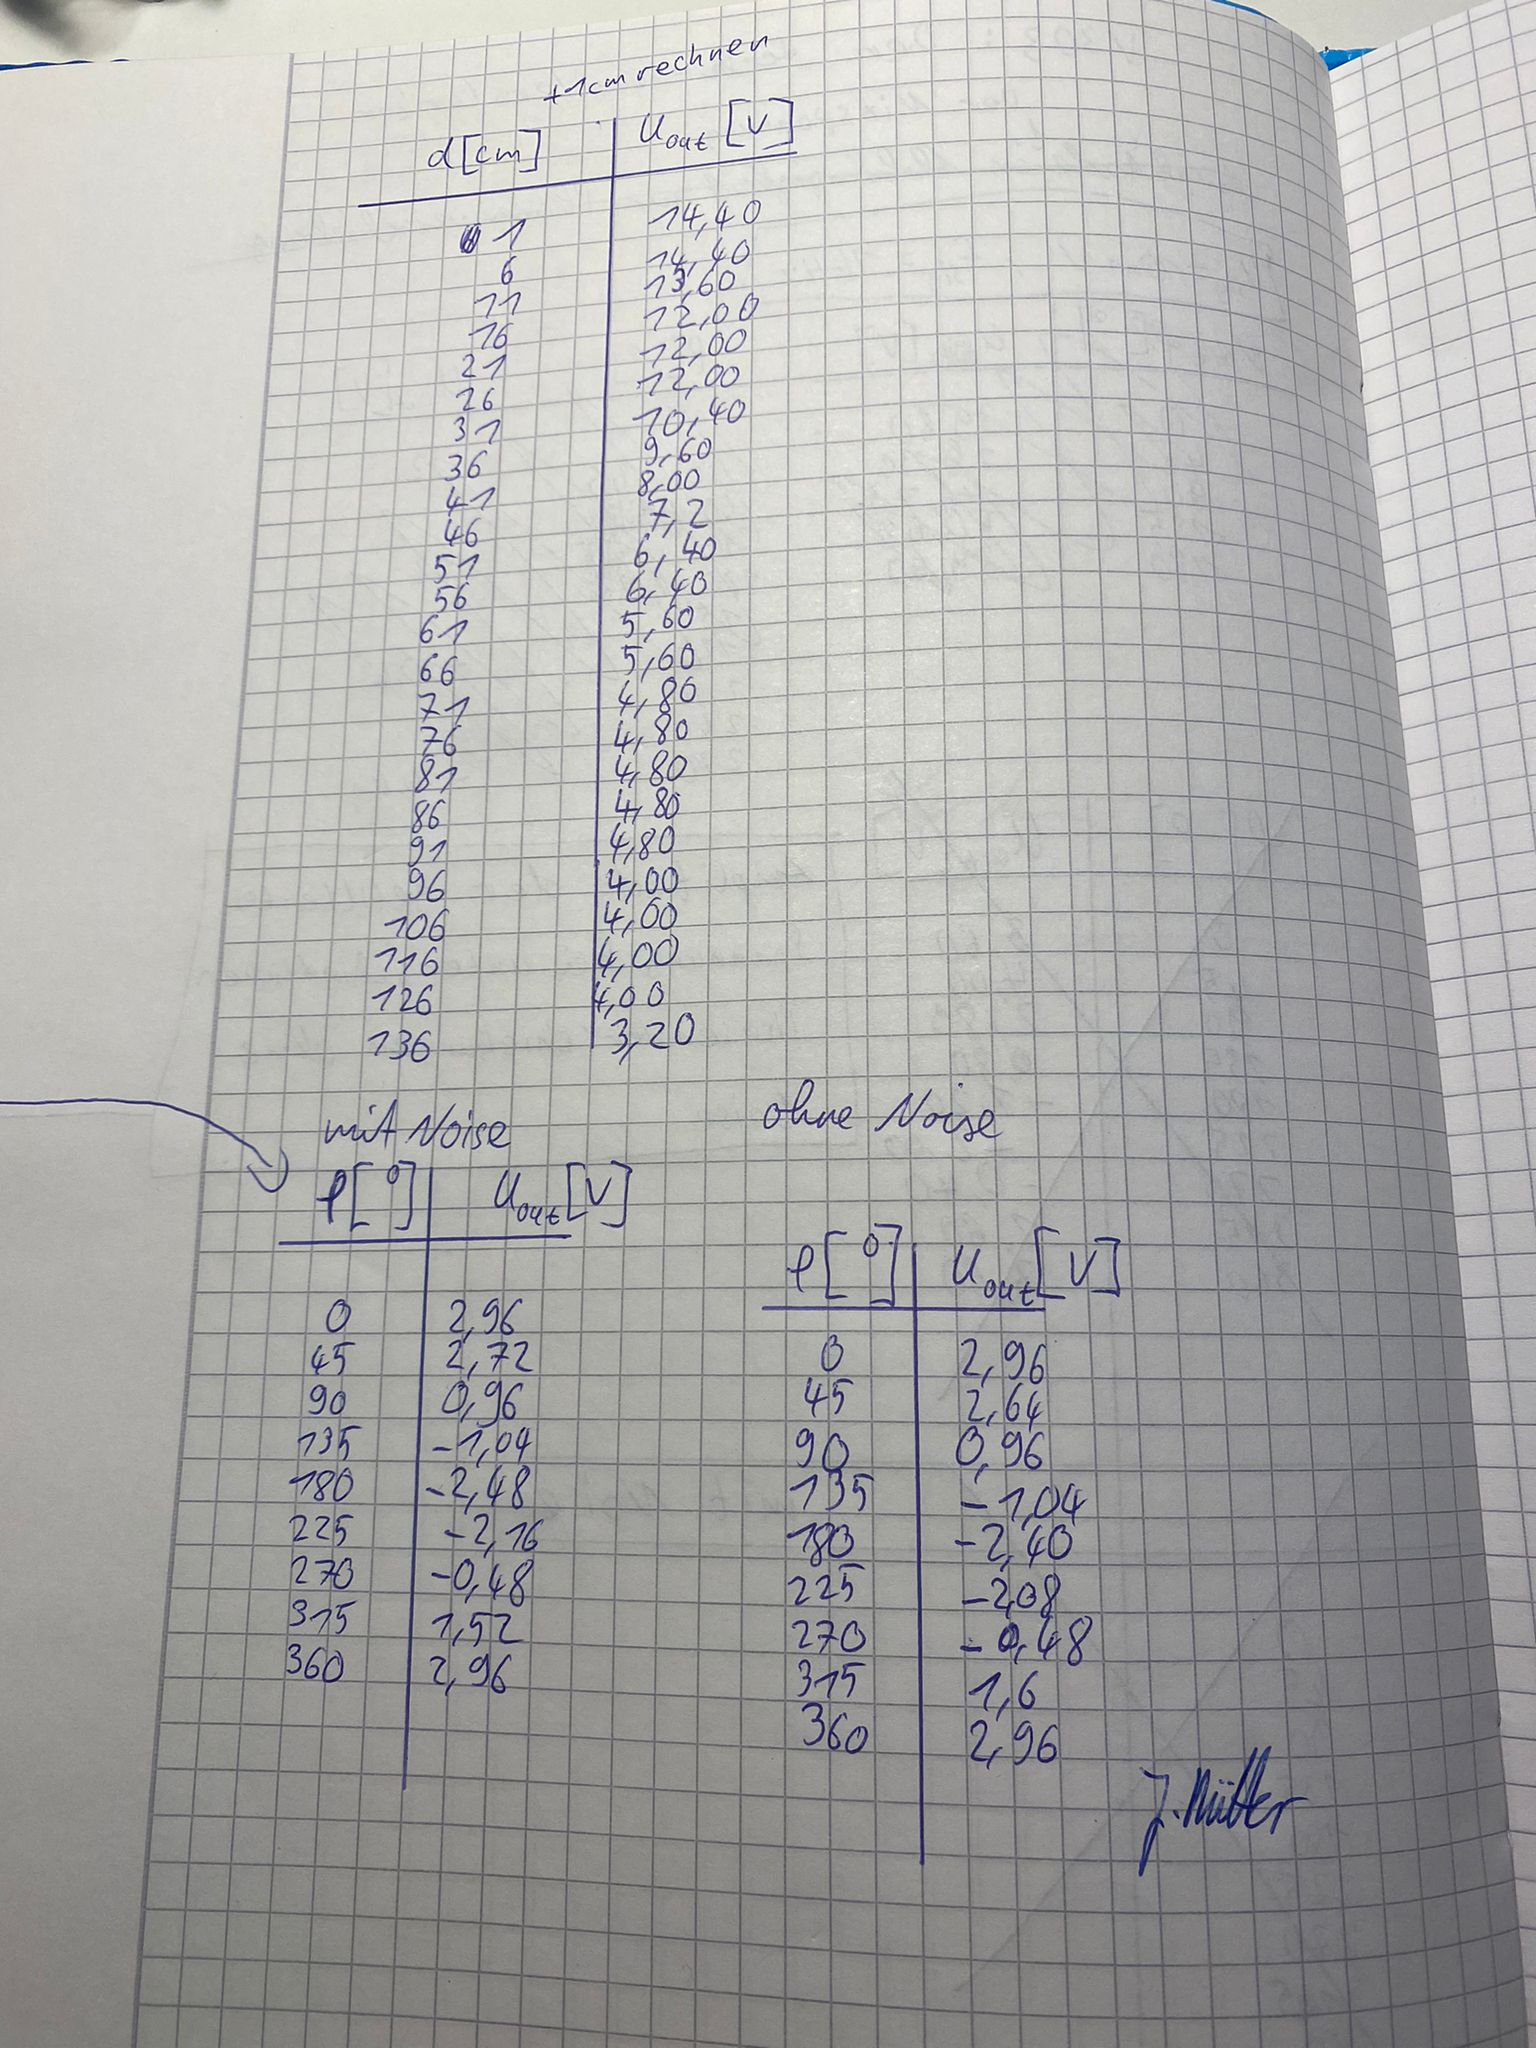 +1cm rechnen
d[cm] U_out [V]
1 14,40
6 14,40
11 13,60
16 12,00
21 12,00
26 12,00
31 10,40
36 9,60
41 8,00
46 7,2
51 6,40
56 6,40
61 5,60
66 5,60
71 4,80
76 4,80
81 4,80
86 4,80
91 4,80
96 4,00
106 4,00
116 4,00
126 4,00
136 3,20
mit Noise
φ[°] U_out [V]
0 2,96
45 2,72
90 0,96
135 -1,04
180 -2,48
225 -2,16
270 -0,48
315 1,52
360 2,96
ohne Noise
φ[°] U_out [V]
0 2,96
45 2,64
90 0,96
135 -1,04
180 -2,40
225 -2,08
270 -0,48
315 1,6
360 2,96